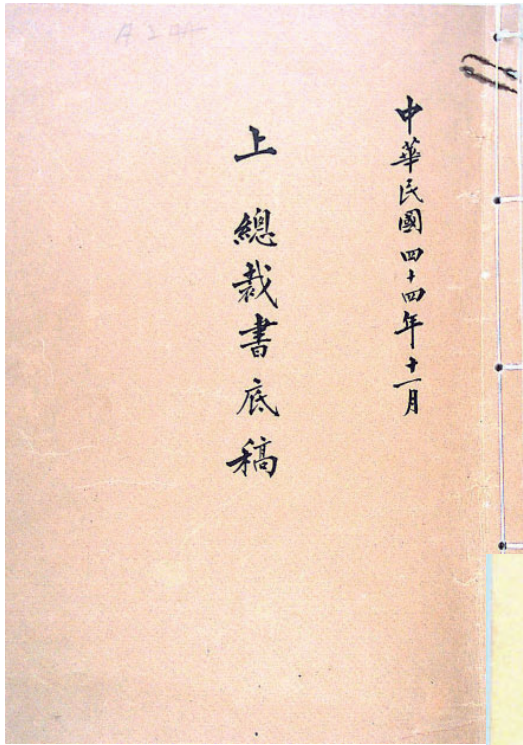 中華民國四十四年十一月
上 總裁書底稿